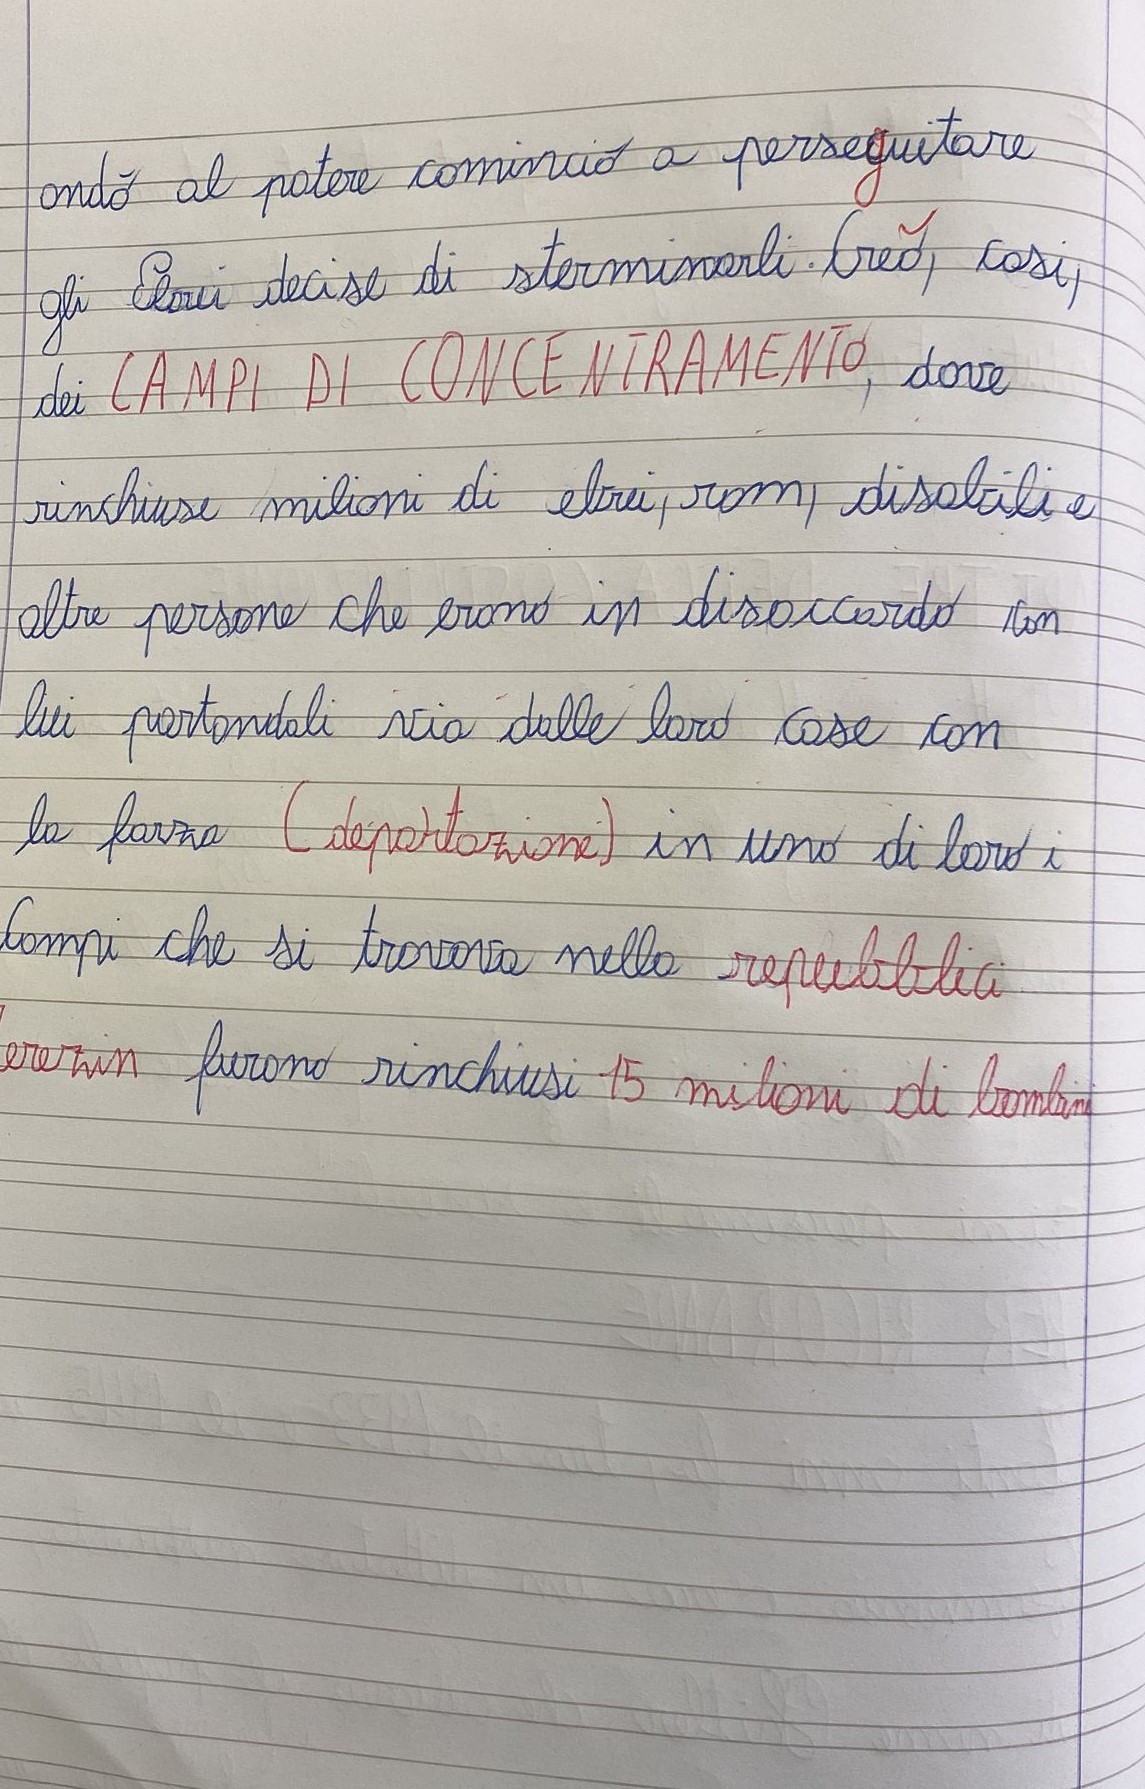 andò al potere cominciò a perseguitare
gli Ebrei decise di sterminarli. Creò, cosi,
dei CAMPI DI CONCENTRAMENTO, dove
rinchiuse milioni di ebrei, rom, disabili e
altre persone che erano in disaccordo con
lui portandoli via dalle loro case con
la forza (deportazione) in uno di loro i
Campi che si trovava nella repubblica
Terezin furono rinchiusi 15 milioni di bambini